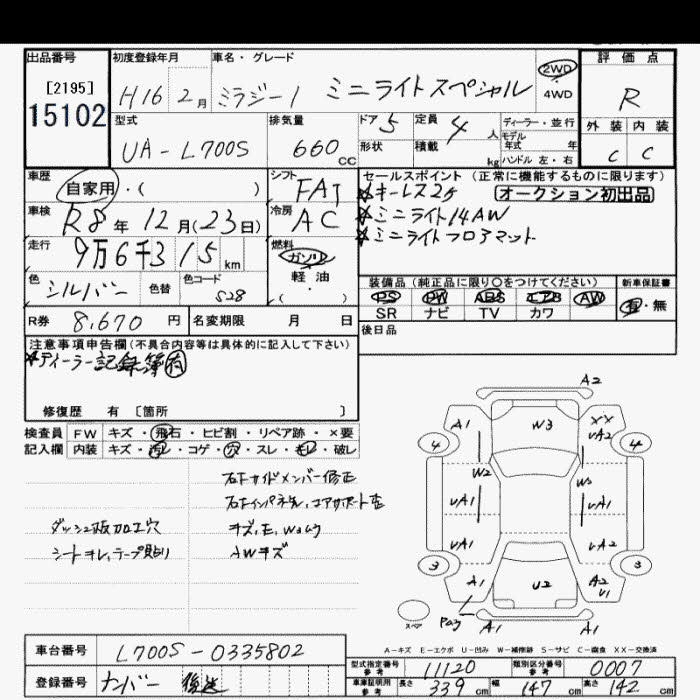 出品番号
[2195]
15102
初度登録年月
H16 2月
車名・グレード
ミラジーノ ミニライトスペシャル
2WD
4WD
評価点
R
外装 内装
C C
型式
UA-L700S
排気量
660 CC
ドア 5
形状
定員 4 人
積載 kg
ディーラー・並行
モデル
年式 年
ハンドル 左・右
車歴
自家用・( )
シフト FAT
セールスポイント (正常に機能するものに限ります)
☆キーレス2ケ オークション初出品
☆ミニライト14AW
☆ミニライトフロアマット
車検
R8年12月(23日)
冷房 AC
走行
9万6千315 km
燃料
ガソリ
軽油
・( )
色
シルバー
色替
色コード
S28
装備品 (純正品に限り○をつけてください)
新車保証書
PS PW ABS エアB AW
SR ナビ TV カワ
有・無
R券 8,670 円
名変期限 月 日
後日品
注意事項申告欄(不具合内容等は具体的に記入して下さい)
☆ディーラー記録簿有
修復歴 有 〔箇所 〕
検査員 FW キズ・飛石・ヒビ割・リペア跡・×要
記入欄 内装 キズ・汚レ・コゲ・穴・スレ・モレ・破レ
右Fサイドメンバー修正
右Fインパネル、コアサポート歪
ダッシュ板加工穴 キズ、E、Wコリ
シートキレ、テープ貼り AWキズ
A2
A1 W3 XX
UA2
4 4
W2 W3
UA1 UA1
UA1 UA2
3 3
A1 U2 A2
U1
スペア
A1 A1
A-キズ E-エクボ U-凹み W-補修跡 S-サビ C-腐食 XX-交換済
車台番号 L700S-0335802
登録番号 ナンバー 後送
型式指定番号
参考
11120
類別区分番号
参考
0007
車庫証明用
参考
長さ 339 cm 幅 147 cm 高さ 142 cm